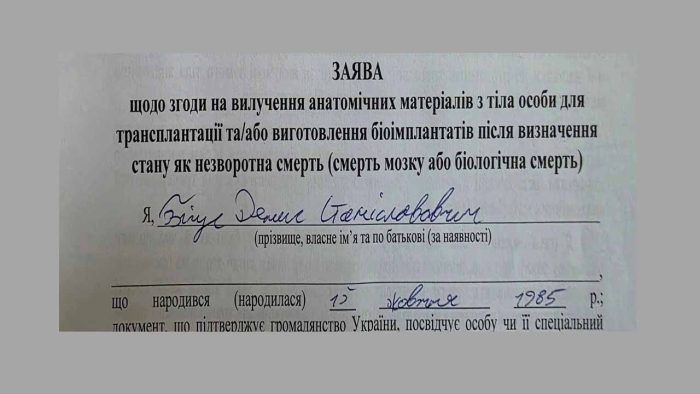 ЗАЯВА
щодо згоди на вилучення анатомічних матеріалів з тіла особи для
трансплантації та/або виготовлення біоімплантатів після визначення
стану як незворотна смерть (смерть мозку або біологічна смерть)
Я, Бігус Денис Станіславович
(прізвище, власне ім’я та по батькові (за наявності)
,
що народився (народилася) жовтня 1985 р.;
документ, що підтверджує громадянство України, посвідчує особу чи її спеціальний